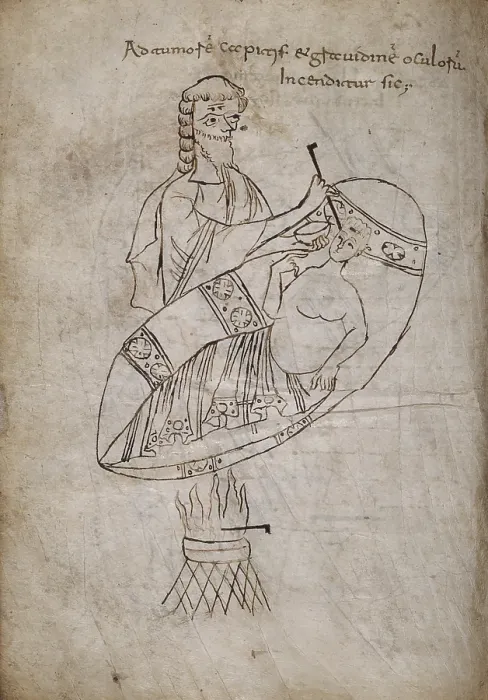 Ad tumorē capitis & grauidinē oculorū.
Incenditur sic;